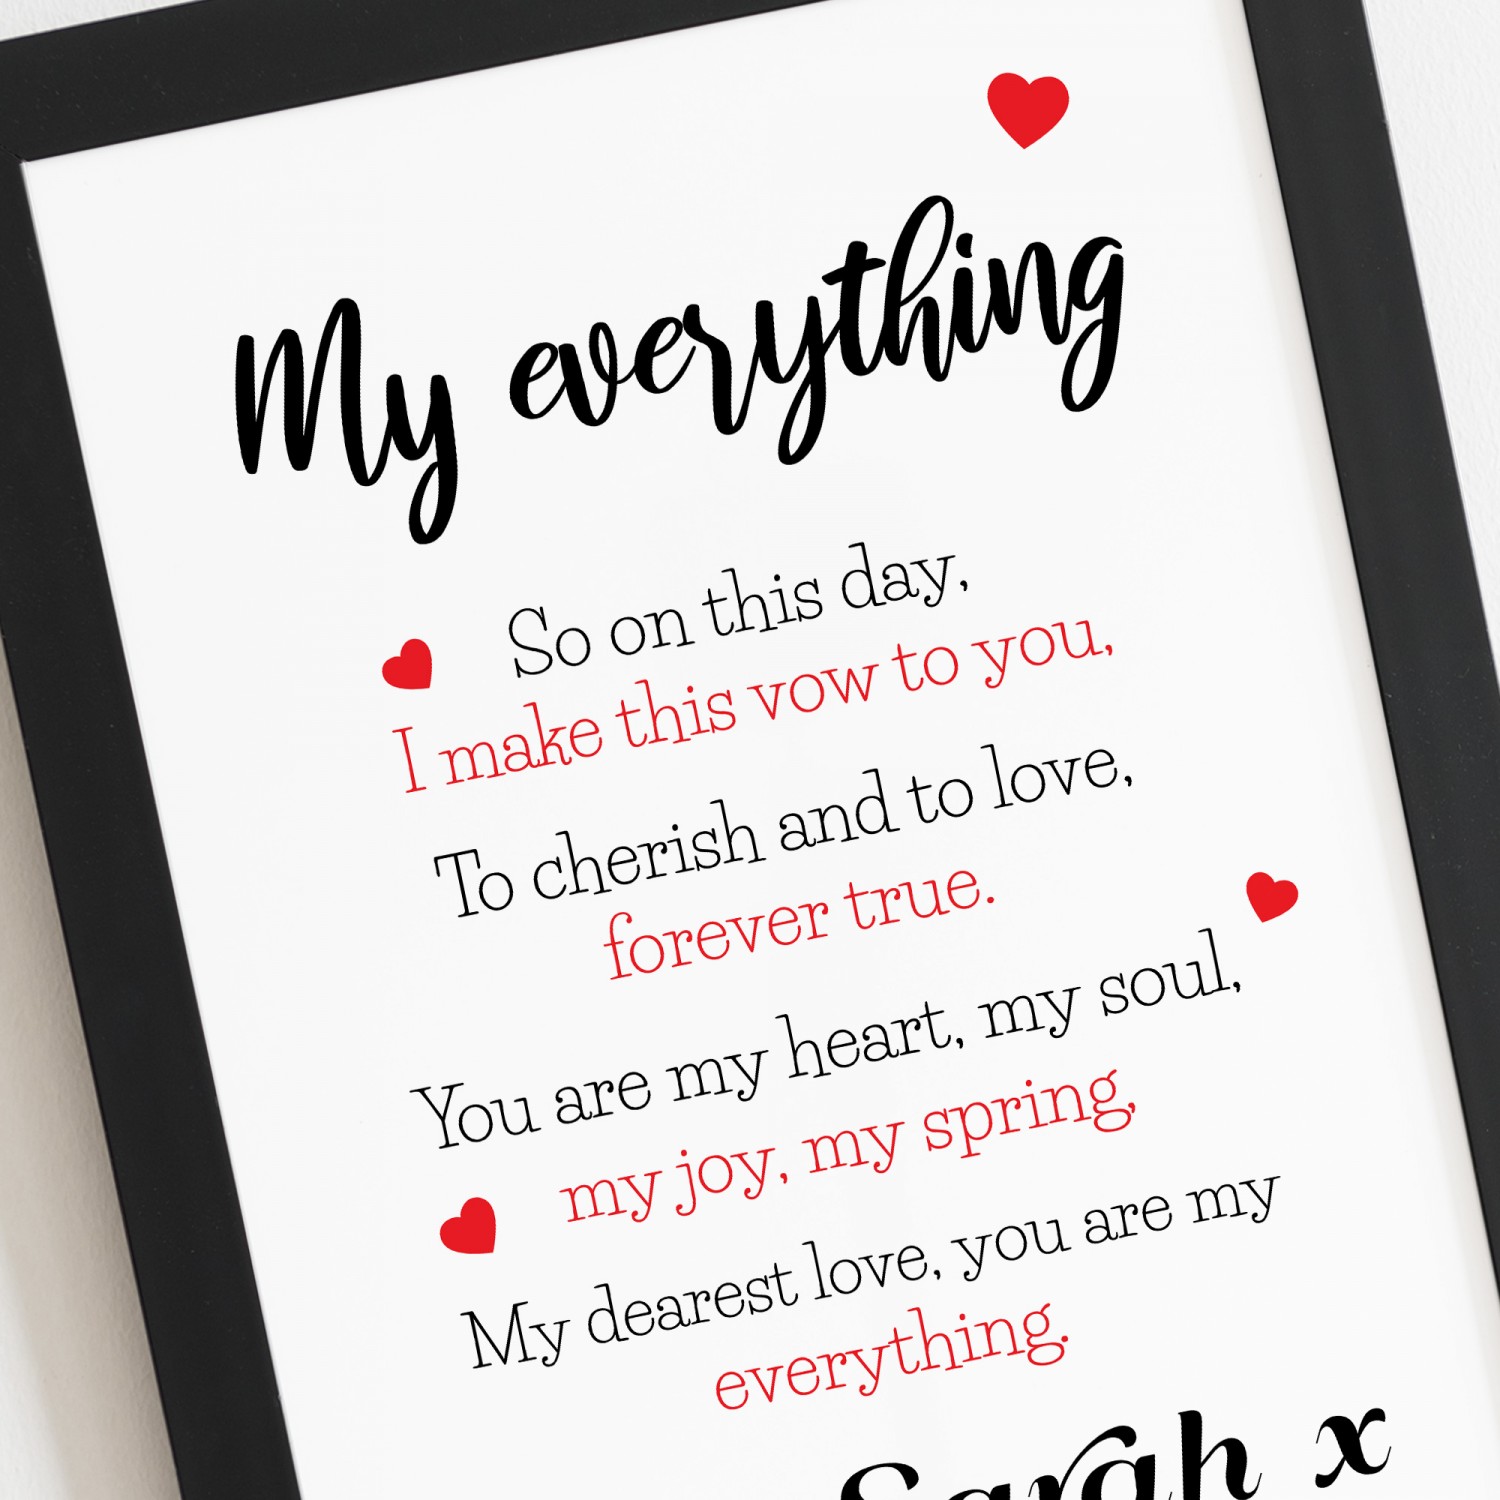 My everything
So on this day,
I make this vow to you,
To cherish and to love,
forever true.
You are my heart, my soul,
my joy, my spring,
My dearest love, you are my
everything.
Sarah x